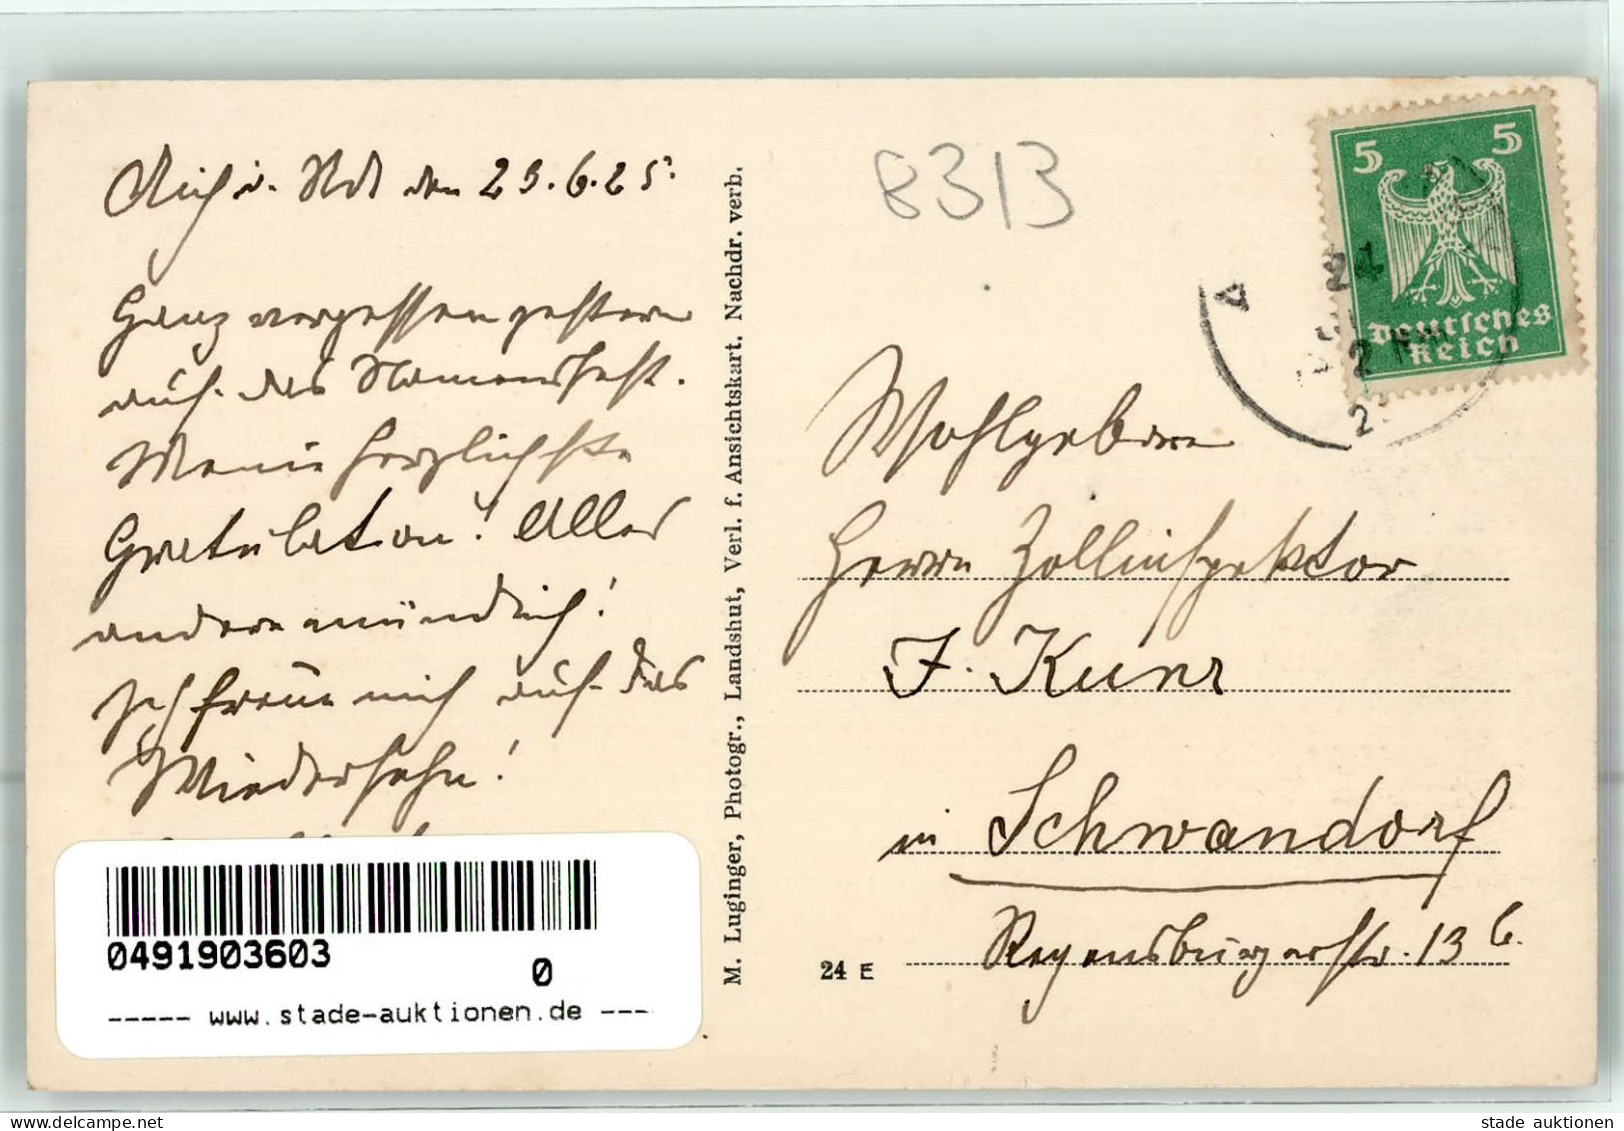 Aich i. Ndb den 23.6.25.
Ganz vergessen gestern
auf das Namensfest.
Meine herzlichste
Gratulation! Alles
andere mündlich!
Ich freue mich auf das
Wiedersehn!
0491903603
0
----- www.stade-auktionen.de ---
M. Luginger, Photogr., Landshut, Verl. f. Ansichtskart. Nachdr. verb.
8313
5 5
Deutsches
Reich
Wohlgeboren
Herrn Zollinspektor
J. Kunz
in Schwandorf
Regensburgerstr. 13 b.
24 E
stade auktionen